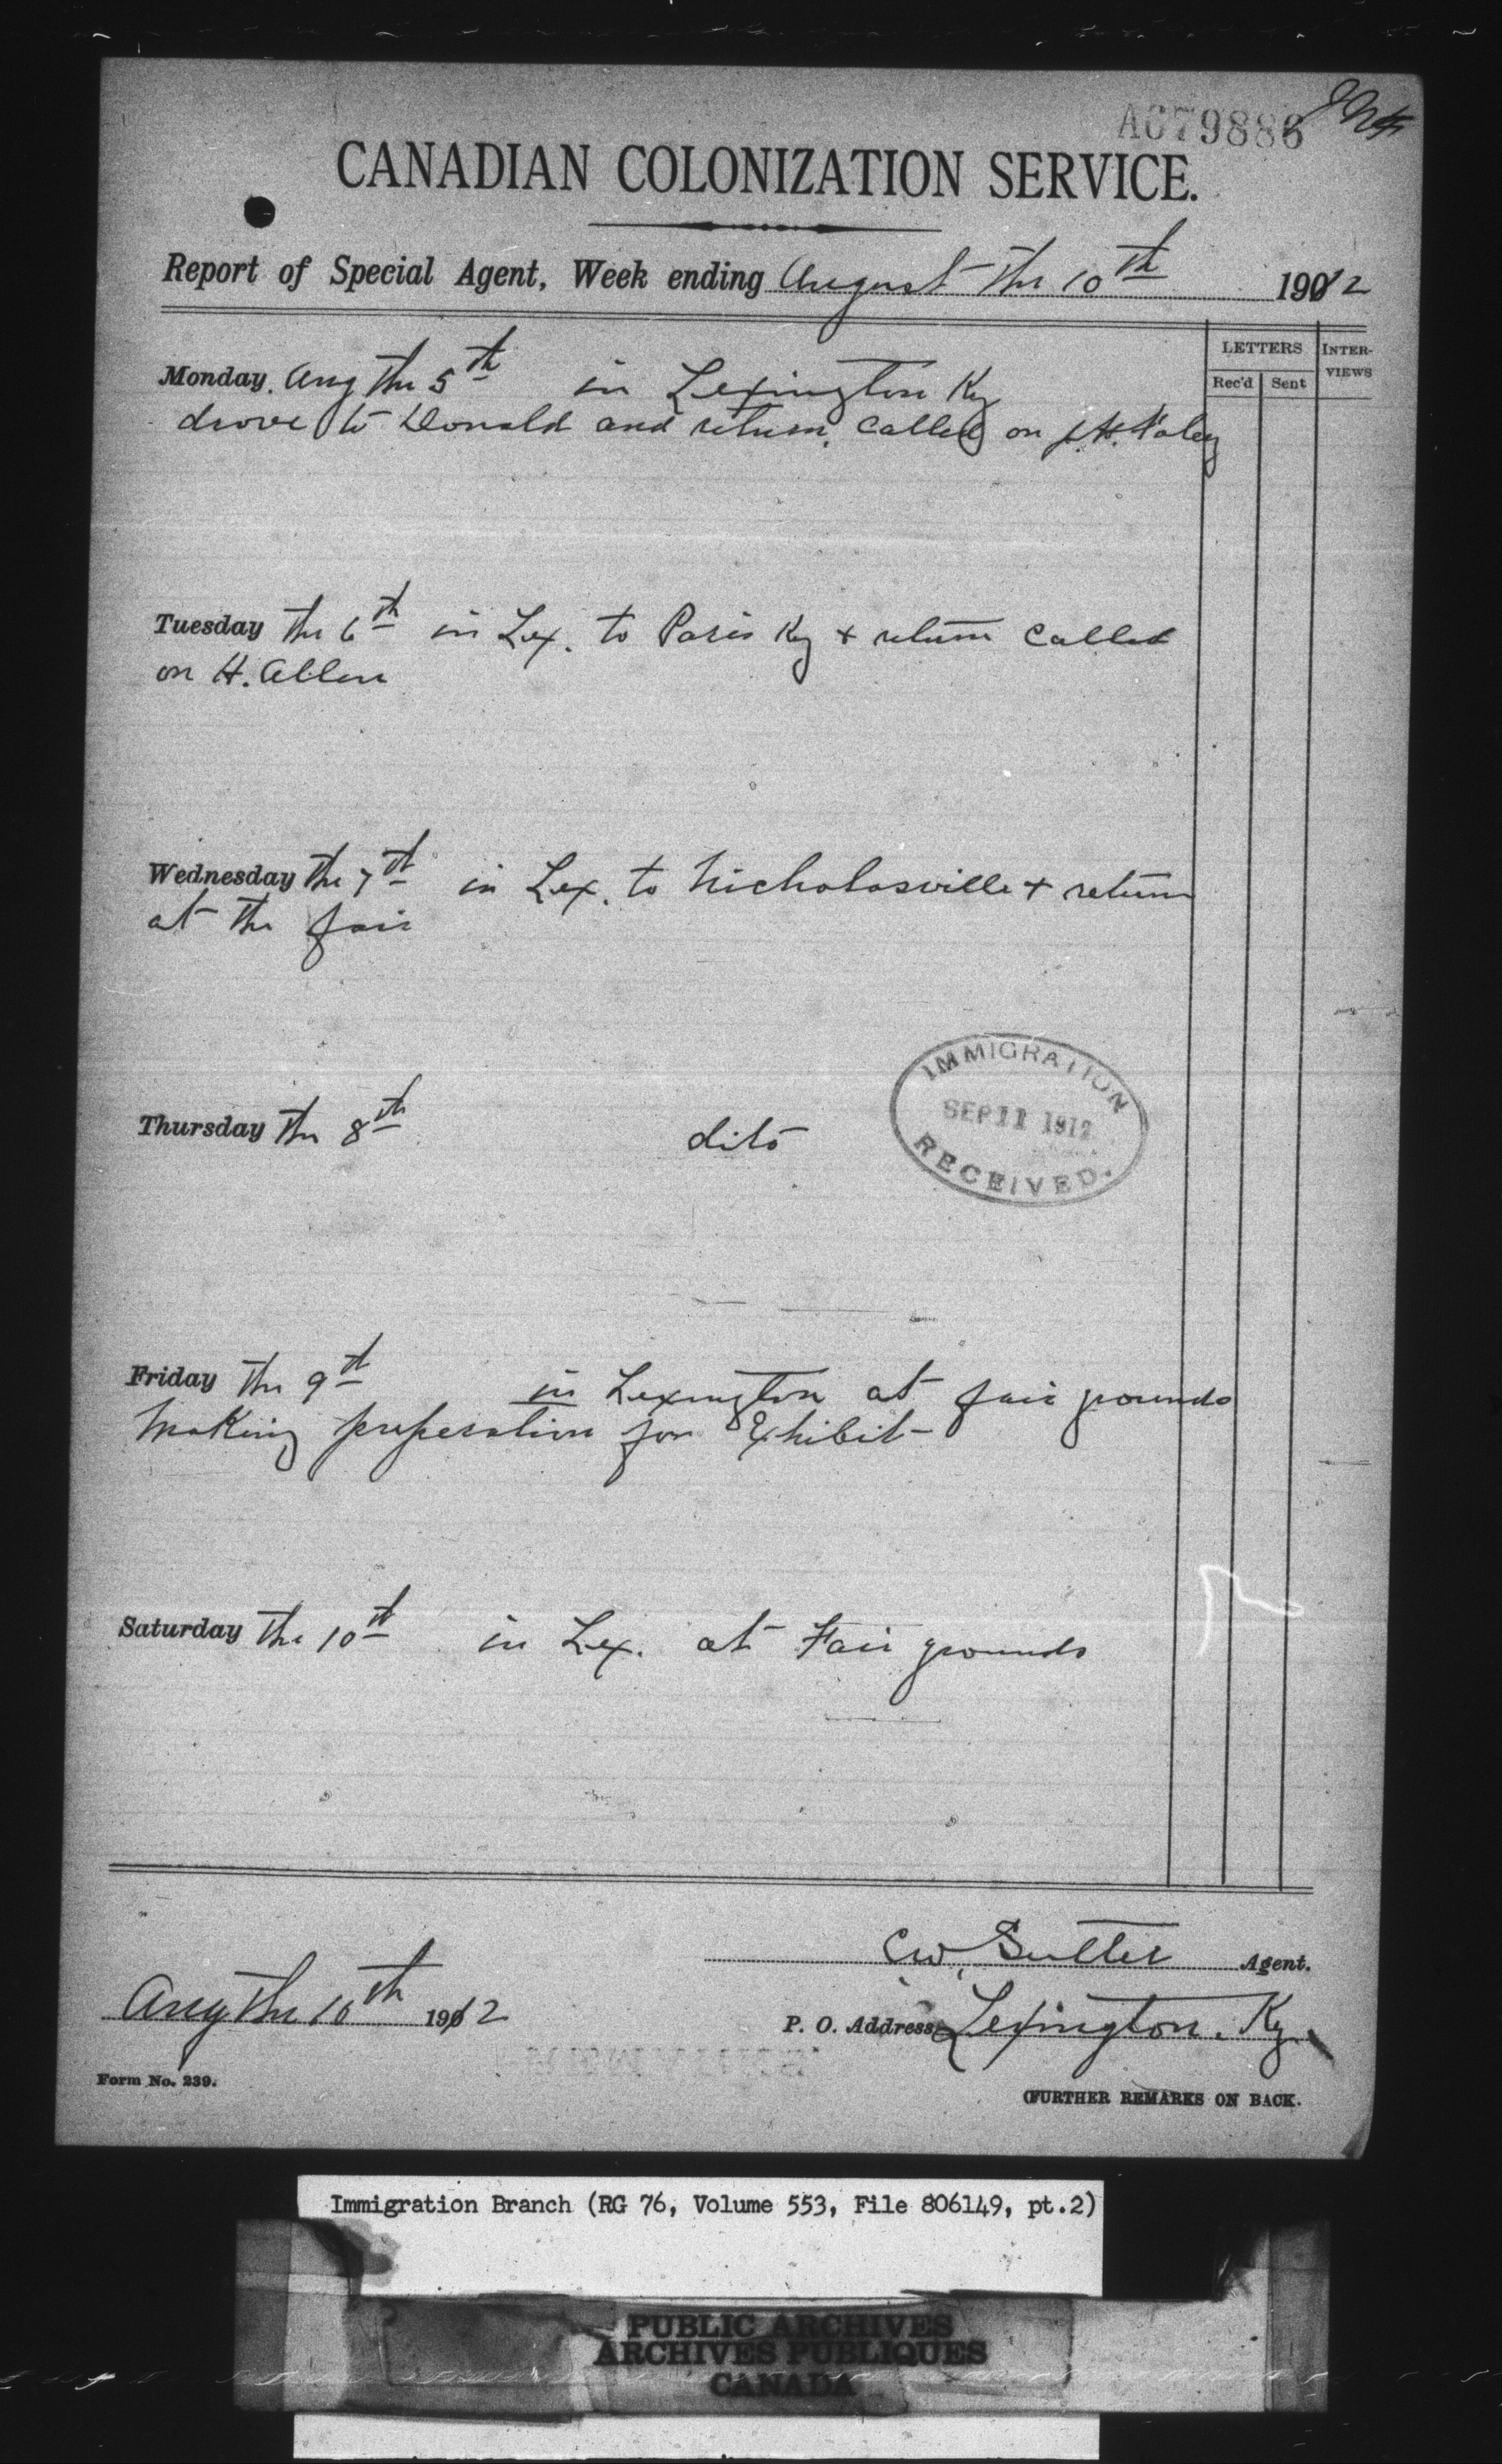 AC79886
CANADIAN COLONIZATION SERVICE.
Report of Special Agent, Week ending August the 10th 1912
LETTERS INTER-VIEWS
Rec'd Sent
Monday. Aug the 5th in Lexington Ky
drove to Donald and return. called on J.H.
Tuesday the 6th in Lex. to Paris Ky + return called
on H. Allen
Wednesday the 7th in Lex. to Nicholasville + return
at the fair
IMMIGRATION
SEP 11 1912
RECEIVED.
Thursday the 8th dito
Friday the 9th in Lexington at fair grounds
making preperation for Exhibit
Saturday the 10th in Lex. at Fair grounds
C.W. Sutter Agent.
Aug the 10th 1912
P. O. Address Lexington. Ky.
Form No. 239.
(FURTHER REMARKS ON BACK.
Immigration Branch (RG 76, Volume 553, File 806149, pt.2)
PUBLIC ARCHIVES
ARCHIVES PUBLIQUES
CANADA